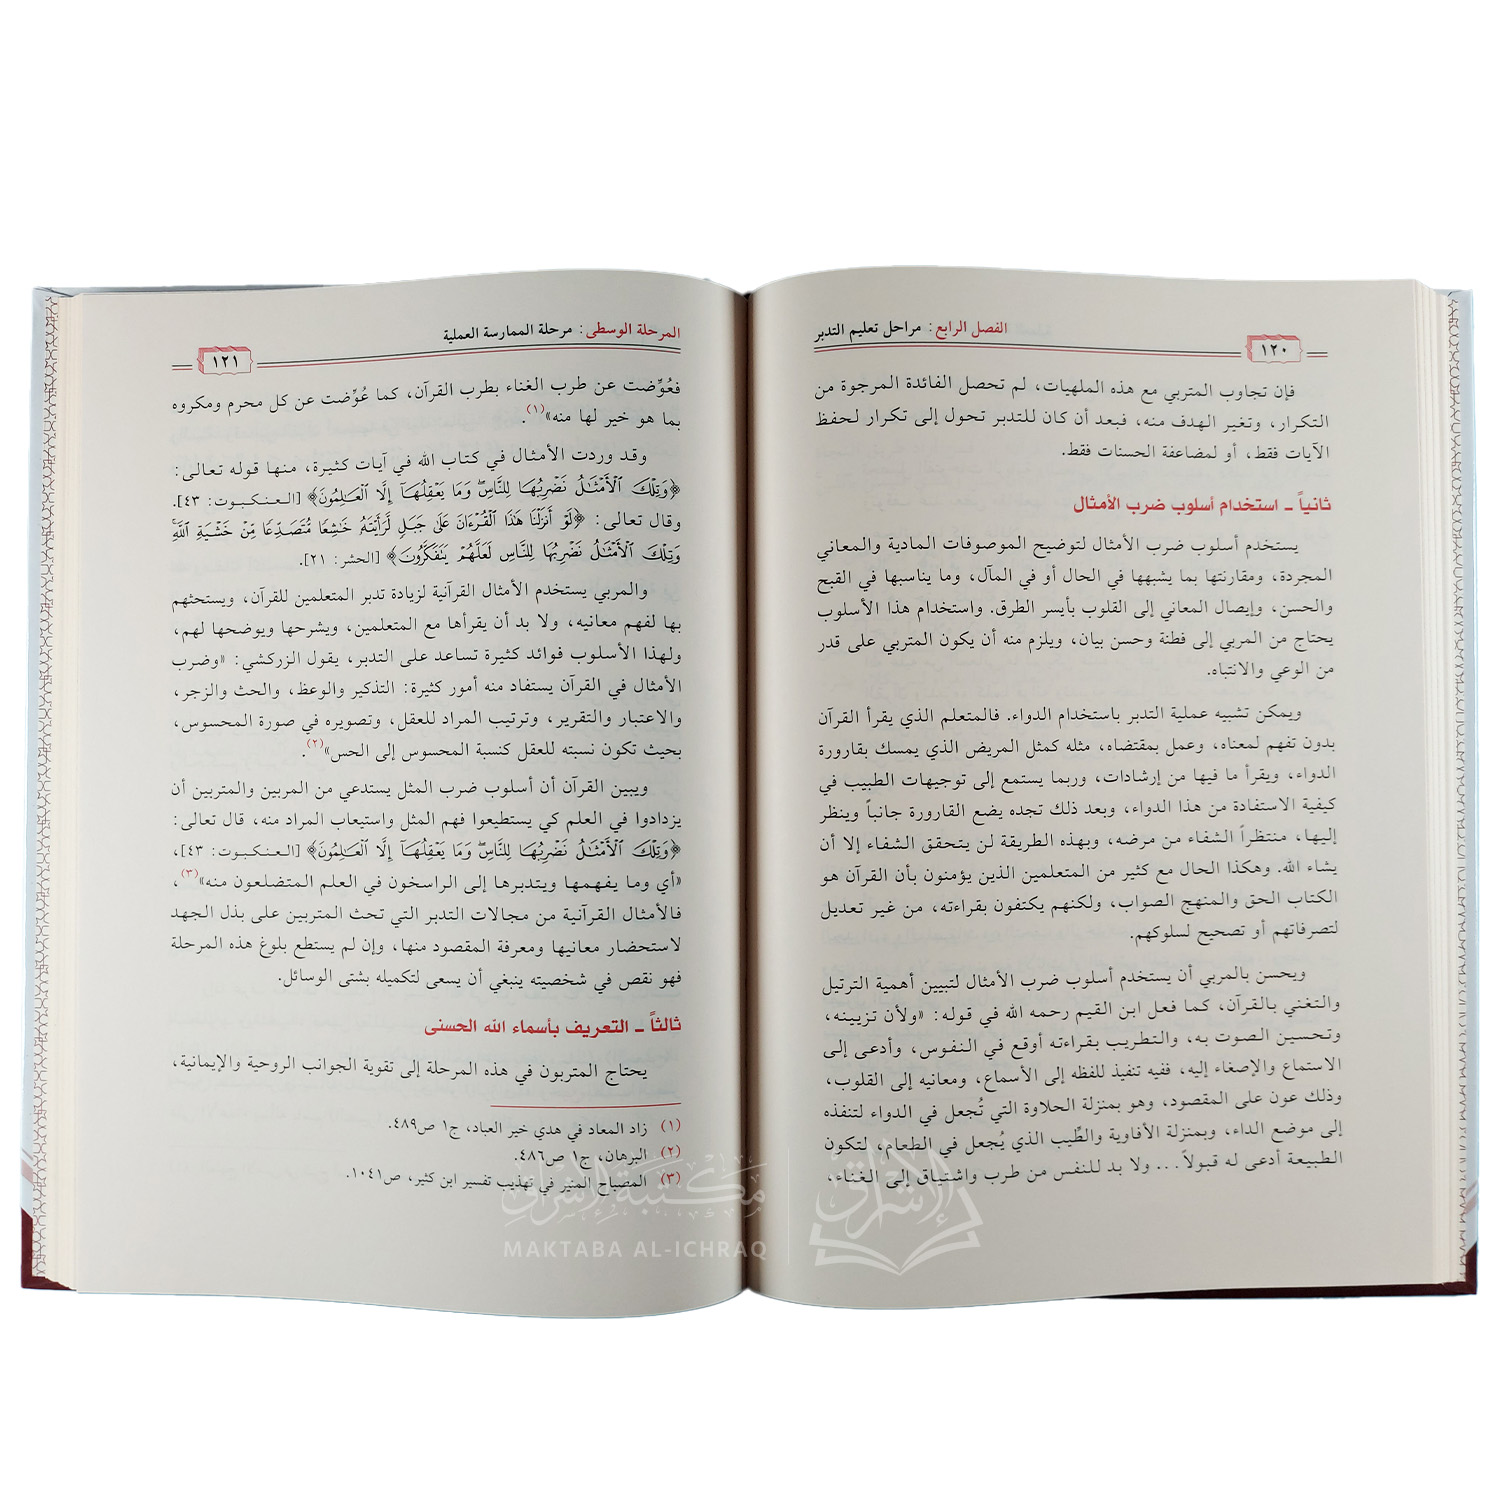 الفصل الرابع: مراحل تعليم التدبر
١٢٠
فإن تجاوب المتربي مع هذه الملهيات، لم تحصل الفائدة المرجوة من
التكرار، وتغير الهدف منه، فبعد أن كان للتدبر تحول إلى تكرار لحفظ
الآيات فقط، أو لمضاعفة الحسنات فقط.
ثانياً ـ استخدام أسلوب ضرب الأمثال
يستخدم أسلوب ضرب الأمثال لتوضيح الموصوفات المادية والمعاني
المجردة، ومقارنتها بما يشبهها في الحال أو في المآل، وما يناسبها في القبح
والحسن، وإيصال المعاني إلى القلوب بأيسر الطرق. واستخدام هذا الأسلوب
يحتاج من المربي إلى فطنة وحسن بيان، ويلزم منه أن يكون المتربي على قدر
من الوعي والانتباه.
ويمكن تشبيه عملية التدبر باستخدام الدواء. فالمتعلم الذي يقرأ القرآن
بدون تفهم لمعناه، وعمل بمقتضاه، مثله كمثل المريض الذي يمسك بقارورة
الدواء، ويقرأ ما فيها من إرشادات، وربما يستمع إلى توجيهات الطبيب في
كيفية الاستفادة من هذا الدواء، وبعد ذلك تجده يضع القارورة جانباً وينظر
إليها، منتظراً الشفاء من مرضه، وبهذه الطريقة لن يتحقق الشفاء إلا أن
يشاء الله. وهكذا الحال مع كثير من المتعلمين الذين يؤمنون بأن القرآن هو
الكتاب الحق والمنهج الصواب، ولكنهم يكتفون بقراءته، من غير تعديل
لتصرفاتهم أو تصحيح لسلوكهم.
ويحسن بالمربي أن يستخدم أسلوب ضرب الأمثال لتبيين أهمية الترتيل
والتغني بالقرآن، كما فعل ابن القيم رحمه الله في قوله: «ولأن تزيينه،
وتحسين الصوت به، والتطريب بقراءته أوقع في النفوس، وأدعى إلى
الاستماع والإصغاء إليه، ففيه تنفيذ للفظه إلى الأسماع، ومعانيه إلى القلوب،
وذلك عون على المقصود، وهو بمنزلة الحلاوة التي تُجعل في الدواء لتنفذه
إلى موضع الداء، وبمنزلة الأفاوية والطِّيب الذي يُجعل في الطعام، لتكون
الطبيعة أدعى له قبولاً... ولا بد للنفس من طرب واشتياق إلى الغناء،
المرحلة الوسطى: مرحلة الممارسة العملية
١٢١
فعُوِّضت عن طرب الغناء بطرب القرآن، كما عُوِّضت عن كل محرم ومكروه
بما هو خير لها منه»(١).
وقد وردت الأمثال في كتاب الله في آيات كثيرة، منها قوله تعالى:
﴿وَتِلْكَ ٱلْأَمْثَٰلُ نَضْرِبُهَا لِلنَّاسِ ۖ وَمَا يَعْقِلُهَآ إِلَّا ٱلْعَٰلِمُونَ﴾ [العنكبوت: ٤٣].
وقال تعالى: ﴿لَوْ أَنزَلْنَا هَٰذَا ٱلْقُرْءَانَ عَلَىٰ جَبَلٍ لَّرَأَيْتَهُۥ خَٰشِعًا مُّتَصَدِّعًا مِّنْ خَشْيَةِ ٱللَّهِ ۚ
وَتِلْكَ ٱلْأَمْثَٰلُ نَضْرِبُهَا لِلنَّاسِ لَعَلَّهُمْ يَتَفَكَّرُونَ﴾ [الحشر: ٢١].
والمربي يستخدم الأمثال القرآنية لزيادة تدبر المتعلمين للقرآن، ويستحثهم
بها لفهم معانيه، ولا بد أن يقرأها مع المتعلمين، ويشرحها ويوضحها لهم،
ولهذا الأسلوب فوائد كثيرة تساعد على التدبر، يقول الزركشي: «وضرب
الأمثال في القرآن يستفاد منه أمور كثيرة: التذكير والوعظ، والحث والزجر،
والاعتبار والتقرير، وترتيب المراد للعقل، وتصويره في صورة المحسوس،
بحيث تكون نسبته للعقل كنسبة المحسوس إلى الحس»(٢).
ويبين القرآن أن أسلوب ضرب المثل يستدعي من المربين والمتربين أن
يزدادوا في العلم كي يستطيعوا فهم المثل واستيعاب المراد منه، قال تعالى:
﴿وَتِلْكَ ٱلْأَمْثَٰلُ نَضْرِبُهَا لِلنَّاسِ ۖ وَمَا يَعْقِلُهَآ إِلَّا ٱلْعَٰلِمُونَ﴾ [العنكبوت: ٤٣]،
«أي وما يفهمها ويتدبرها إلى الراسخون في العلم المتضلعون منه»(٣)،
فالأمثال القرآنية من مجالات التدبر التي تحث المتربين على بذل الجهد
لاستحضار معانيها ومعرفة المقصود منها، وإن لم يستطع بلوغ هذه المرحلة
فهو نقص في شخصيته ينبغي أن يسعى لتكميله بشتى الوسائل.
ثالثاً ـ التعريف بأسماء الله الحسنى
يحتاج المتربون في هذه المرحلة إلى تقوية الجوانب الروحية والإيمانية،
(١) زاد المعاد في هدي خير العباد، ج١ ص٤٨٩.
(٢) البرهان، ج١ ص٤٨٦.
(٣) المصباح المنير في تهذيب تفسير ابن كثير، ص١٠٤١.
مكتبة الإشراق
الإشراق
MAKTABA AL-ICHRAQ